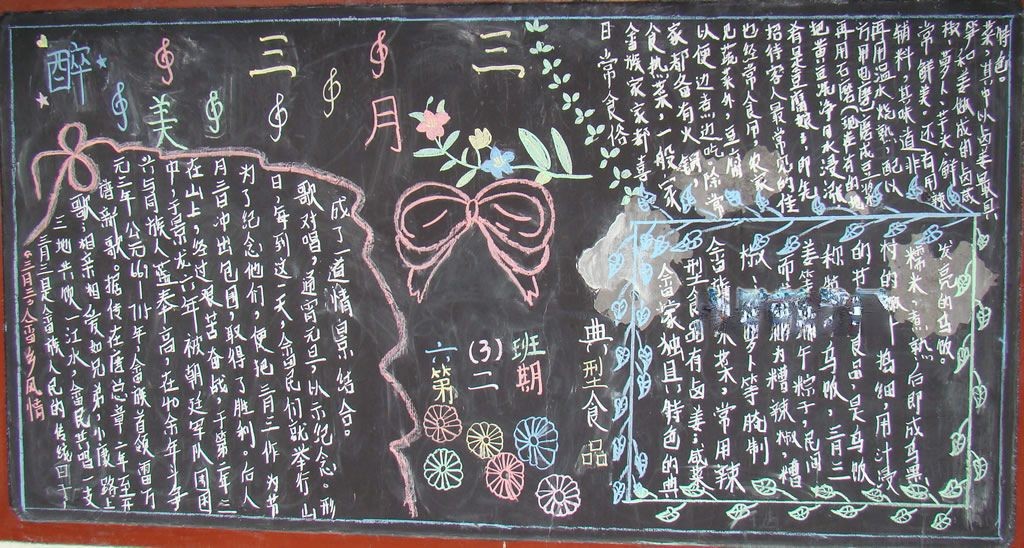 醉美三月三
三月三,畲乡风情
三月三是畲族人民的传统日子,
三地共饮一江水,畲族民唱一支
歌,相亲相爱如兄弟。小展路上
唱新歌。据传在唐总章二年至开
元三年 畲族首领雷万
兴与同族人蓝奉高,在40余年斗争
中,于景龙六年被朝廷军队围困
在山上,经过艰苦奋战,于第二年三
月三日冲出包围,取得了胜利。后人
为了纪念他们,便把三月三作为节
日,每到这一天,畲民们就举行山
歌对唱,通宵元旦,以示纪念。形
成了一道情景结合。
六(3)班
第二期
日常食俗
畲族家家都喜
食热菜,一般家
家都备有火锅,
以便边煮边吃。除常
见蔬菜外,豆腐
也经常食用,农家
招待客人最常见的佳
肴是豆腐 即先
把黄豆洗净用水浸
再用石磨
再用温水烧熟,配以
辅料,其味道非
常鲜美。还有用辣
椒、萝卜、芋头、鲜
笋和姜做成的卤
菜,其中以卤姜最具
特色。
典型食品
畲家独具特色的典
型食品有卤姜,咸菜
畲族 水菜。常用辣
椒 萝卜等腌制
而 为糟辣椒,糟
姜等 端午粽子,民间
乌饭,三月三
的节 食品,是乌饭
树的嫩叶捣细,用汁浸
糯米,煮熟后即成乌黑
发亮的乌饭